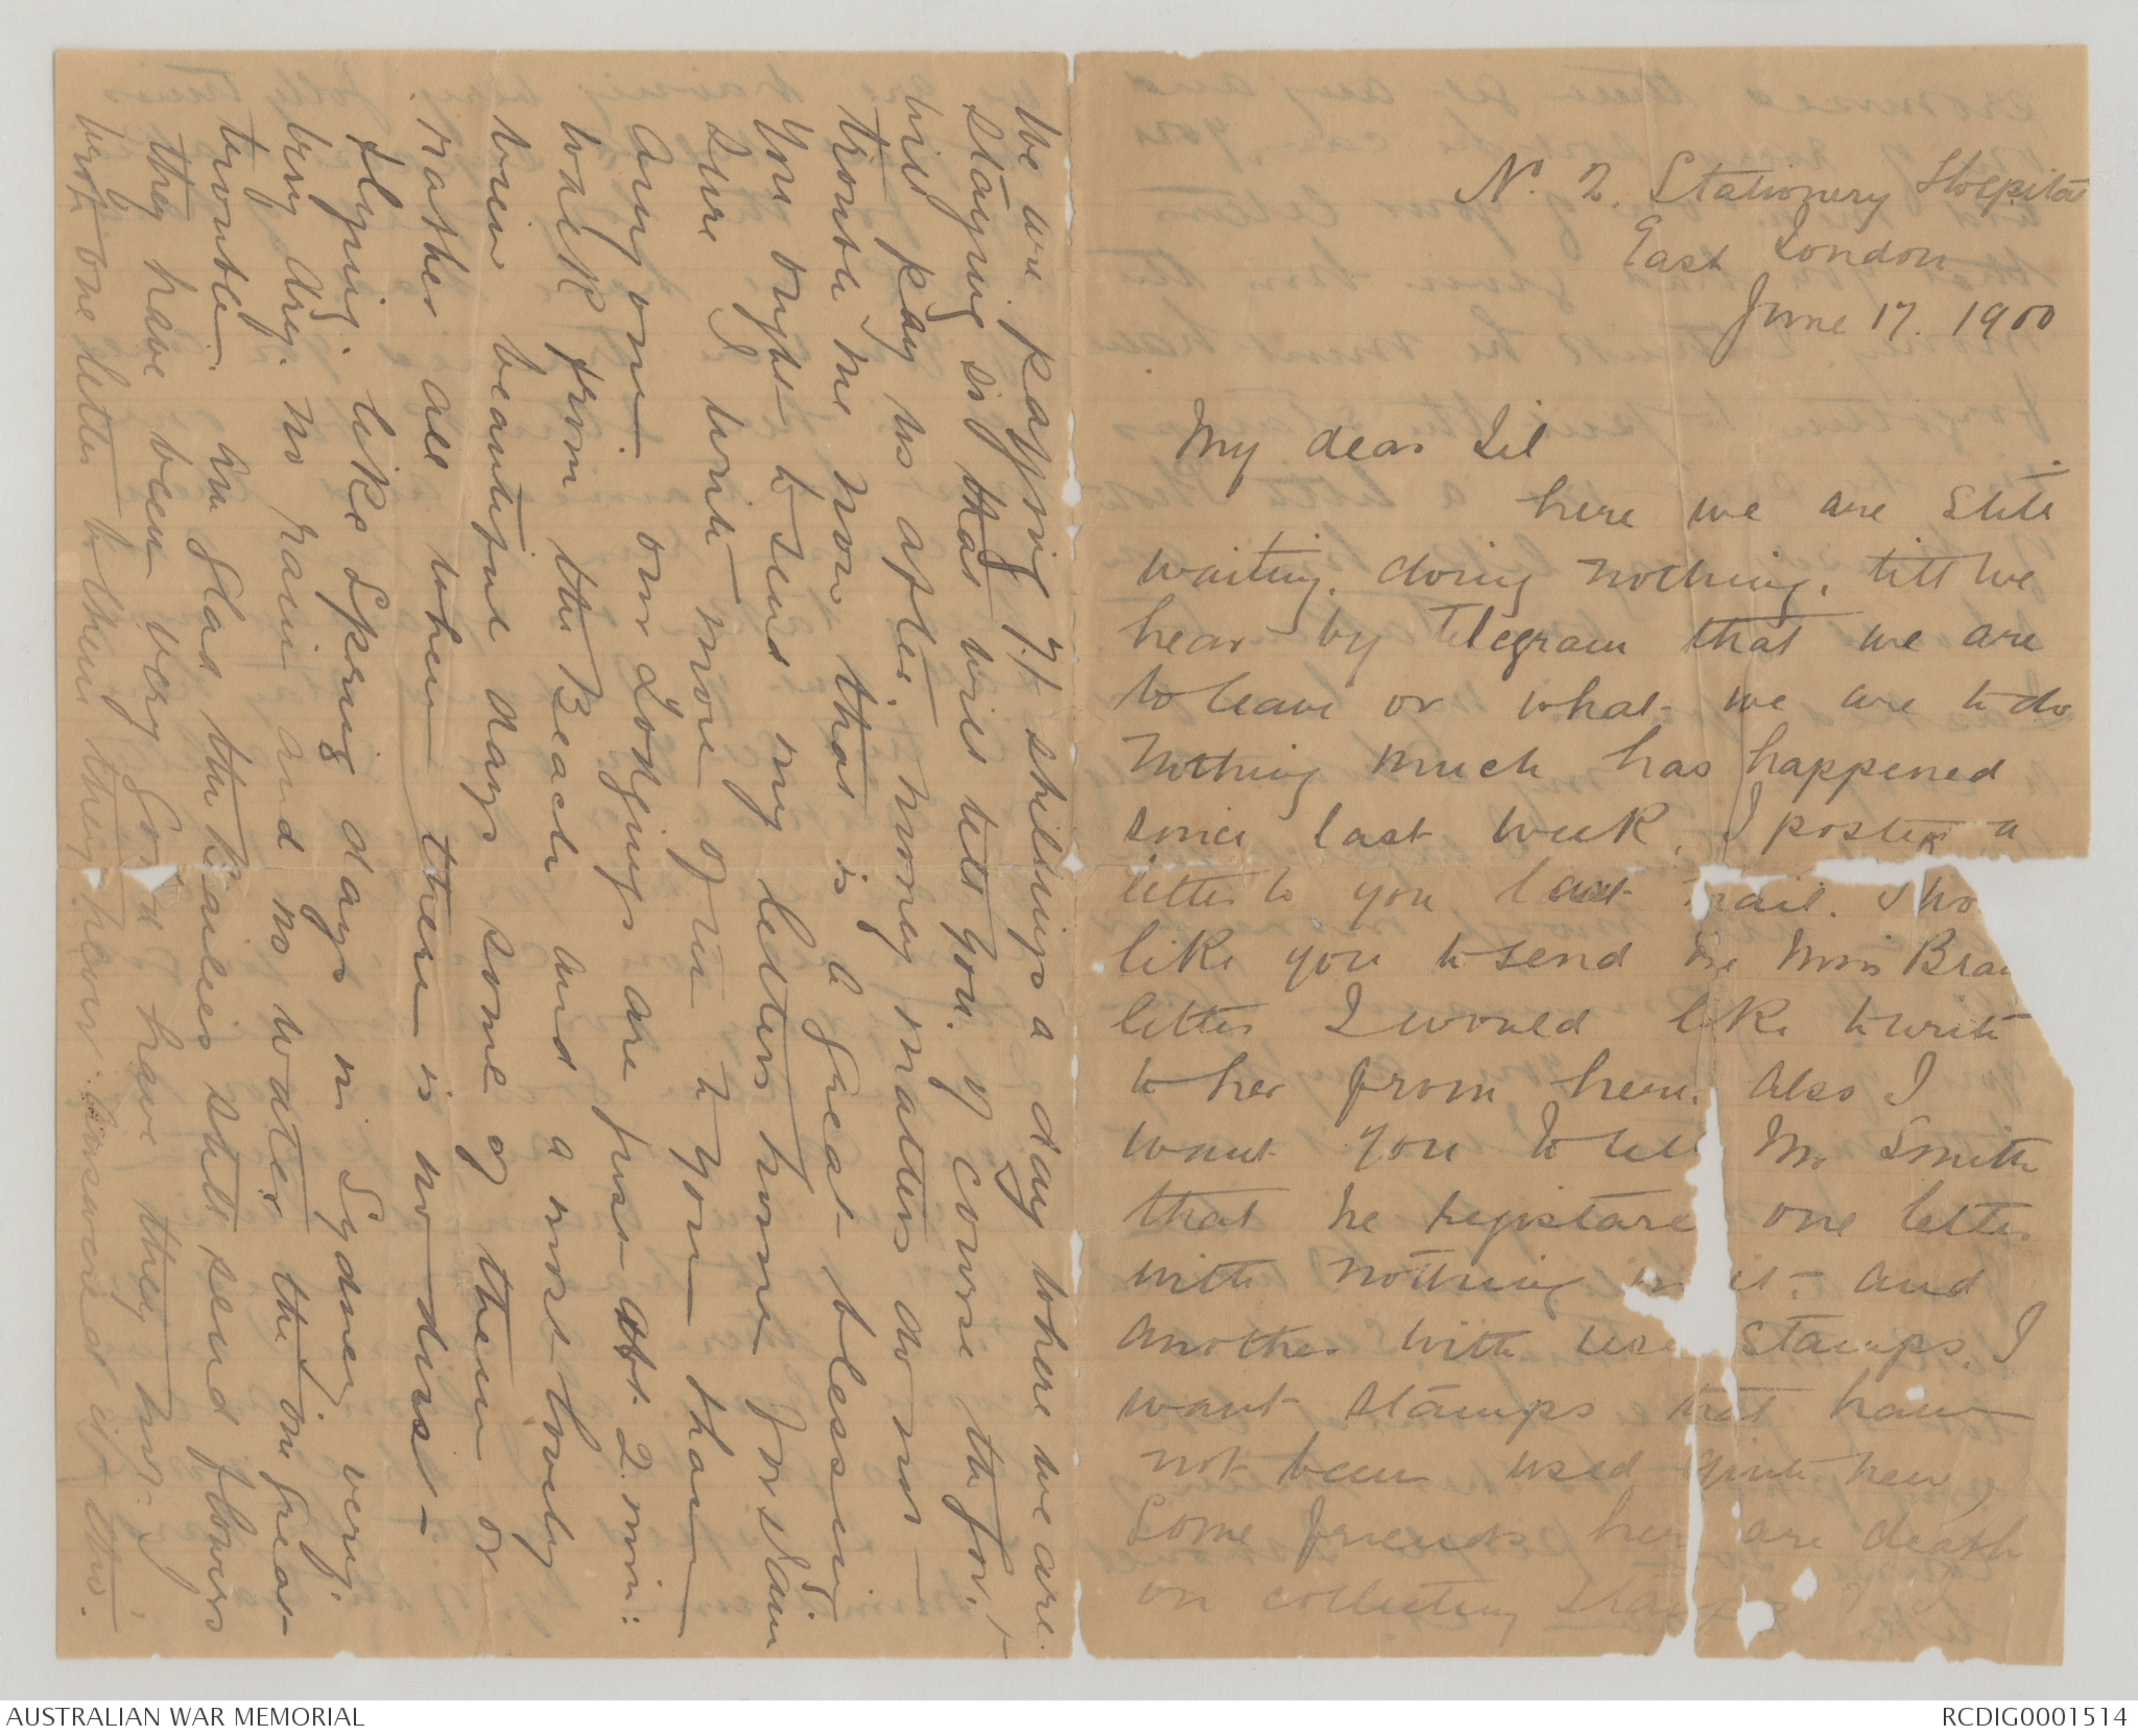 No. 2. Stationery Hospital
East London
June 17. 1900
My dear Lil
here we are still
waiting. doing nothing. till we
hear by Telegram that we are
to leave or what we are to do
Nothing much has happened
since last week. I posted a
letter to you last mail. I sho
like you to send me Miss Bra
letter I would like to write
to her from here. Also I
want you to tell Mr Smith
that he registare one letter
with nothing in it. and
another with use stamps. I
want stamps that have
not been used quite new,
Some friends her are death
on collecting stamps
We are paying 7/ shillings a day where we are
staying so that will tell you. of course the Gov.t
will pay us after. money matters do not
trouble me now that is a great blessing
You ought to send my letters home for I am
sure I write more of them to you than
any one. our Lodgings are just abt. 2. min:
walk from the Beach and a most lovely
view beautiful days some of them or
rather all when there is no dust
flying. like Spring days in Sydney very.
very dry. no rain and no water the one great
trouble. am glad the Bailies still send flowers
they have been very good have they not. I
wrote one letter to them they never answered it tho'.